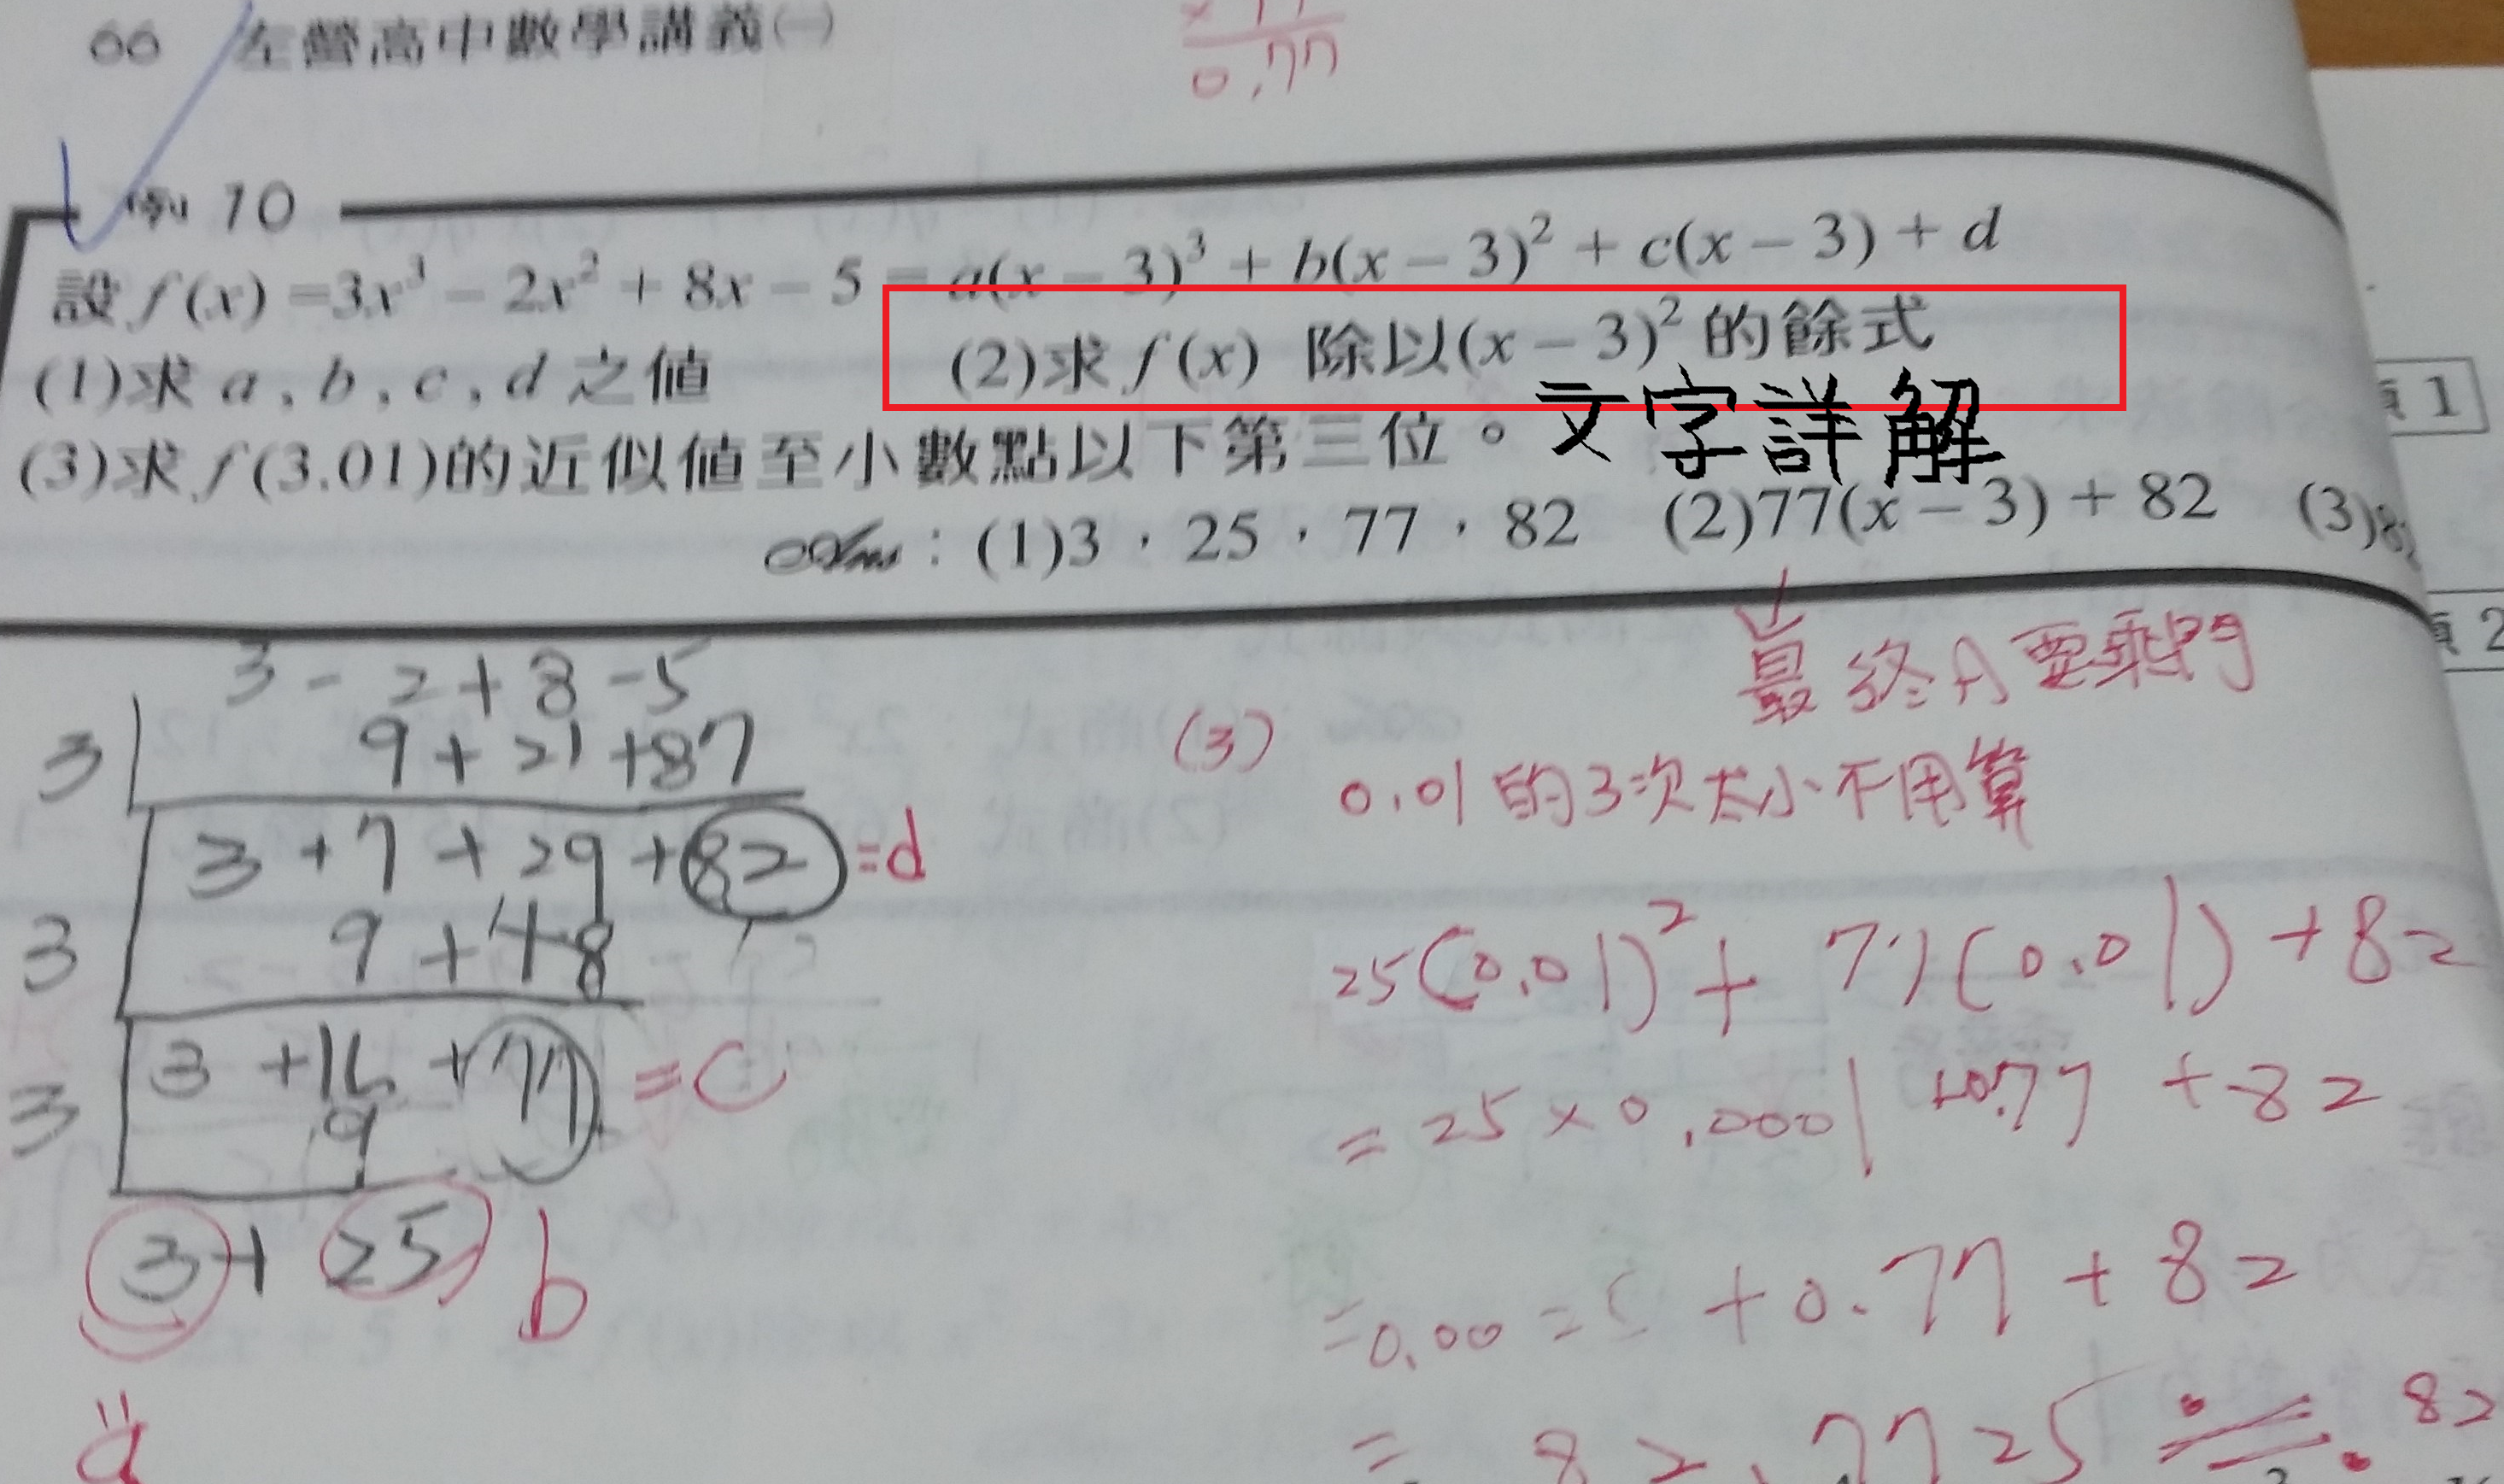 66 左營高中數學講義(一)
× 77
0.77
例 10
設 f(x) =3x³ − 2x² + 8x − 5 = a(x − 3)³ + b(x − 3)² + c(x − 3) + d
(1)求 a , b , c , d 之值 (2)求 f(x) 除以(x − 3)² 的餘式
(3)求 f(3.01)的近似值至小數點以下第三位。 文字詳解
Ans : (1)3 , 25 , 77 , 82 (2)77(x − 3) + 82 (3)8
1
2
3 - 2 + 8 - 5
3 9 + 21 + 87
3 + 7 + 29 + 82 = d
3 9 + 48
3 + 16 + 77 = c
3 9
3 + 25 b
a
(3)
0.01的3次太小不用算
25(0.01)² + 77(0.01) + 82
= 25 × 0.0001 + 0.77 + 82
= 0.00 + 0.77 + 82
= 82.7725 ≒ 82